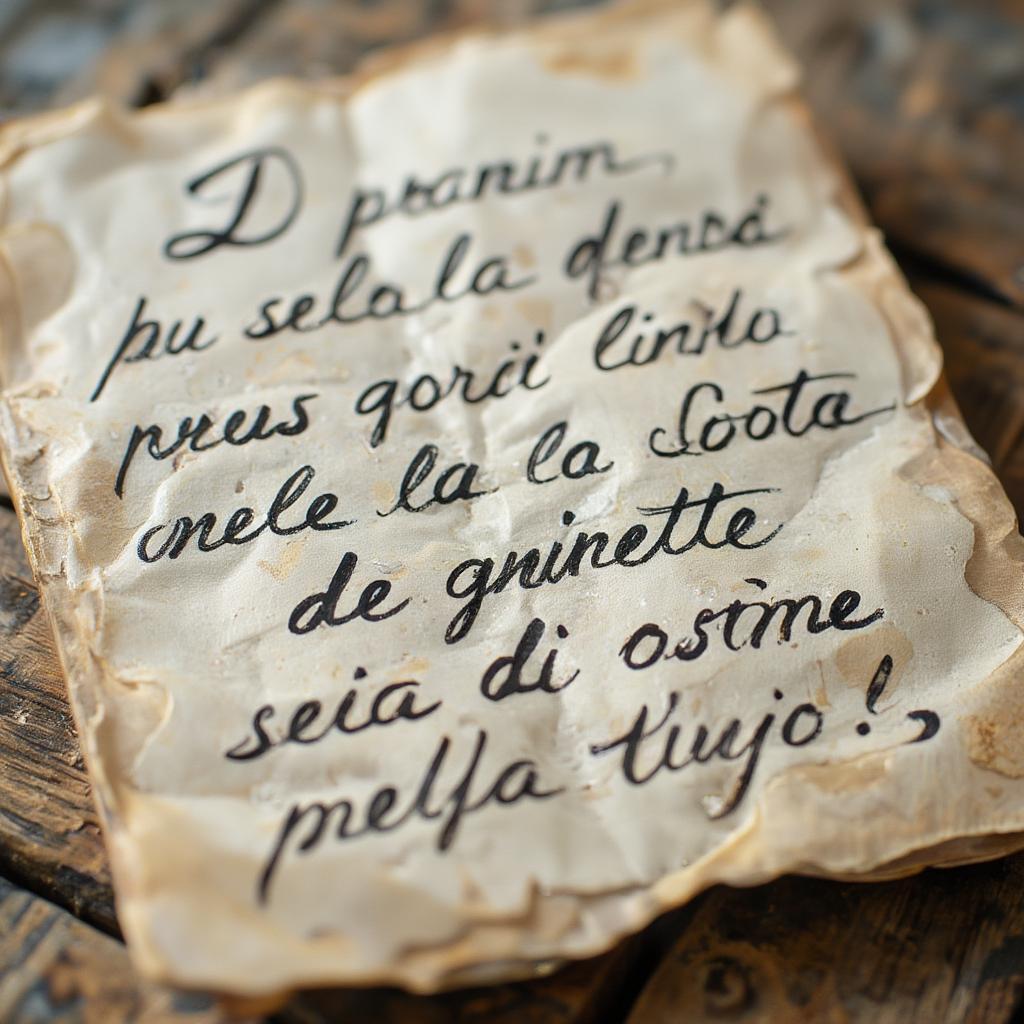 D pranim
pu selala densa
preus gorii linito
onele la la Soota
de gninette
seia di ostme
melfa tiujo!